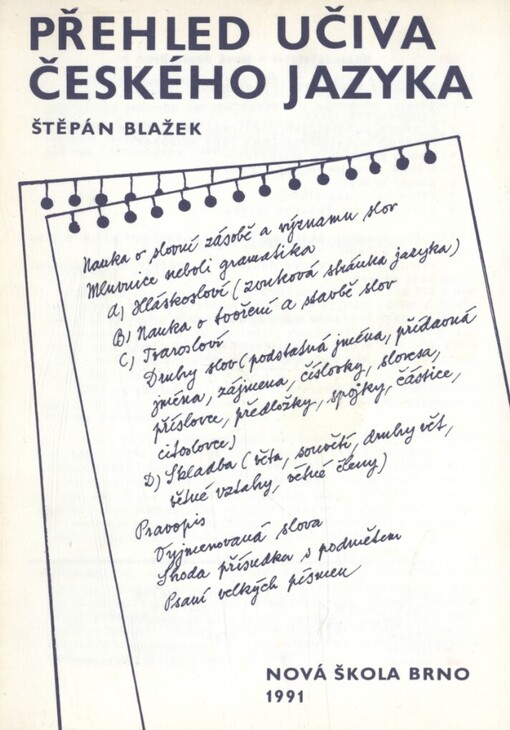 PŘEHLED UČIVA
ČESKÉHO JAZYKA
ŠTĚPÁN BLAŽEK
Nauka o slovní zásobě a významu slov
Mluvnice neboli gramatika
A) Hláskosloví (zvuková stránka jazyka)
B) Nauka o tvoření a stavbě slov
C) Tvarosloví
Druhy slov (podstatná jména, přídavná
jména, zájmena, číslovky, slovesa,
příslovce, předložky, spojky, částice,
citoslovce)
D) Skladba (věta, souvětí, druhy vět,
větné vztahy, větné členy)
Pravopis
Vyjmenovaná slova
Shoda přísudku s podmětem
Psaní velkých písmen
NOVÁ ŠKOLA BRNO
1991